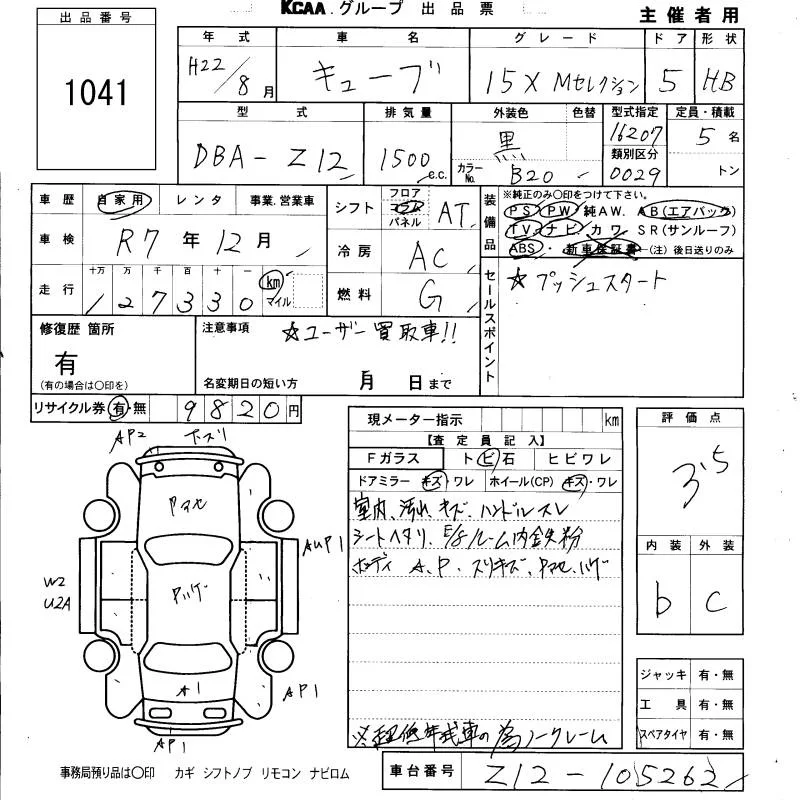 KCAA.グループ 出品票
主催者用
出品番号
1041
年式 車名 グレード ドア 形状
H22/8月 キューブ 15X Mセレクション 5 HB
型式 排気量 外装色 色替 型式指定 定員・積載
DBA-Z12 1500 c.c. 黒 カラーNo. B20 16207 5名
類別区分
0029 トン
車歴 自家用 レンタ 事業.営業車
シフト フロア コラム パネル AT
装備品 ※純正のみ○印をつけて下さい。
PS PW 純AW. AB(エアバック)
TV ナビ カワ SR(サンルーフ)
ABS ・ 新車保証書 (注)後日送りのみ
車検 R7年12月
冷房 AC
走行 十万 万 千 百 十 一
127330 km マイル
燃料 G
セールスポイント ☆プッシュスタート
修復歴 箇所
有
(有の場合は○印を)
注意事項 ☆ユーザー買取車!!
名変期日の短い方 月 日まで
リサイクル券 有・無 9820円
現メーター指示 km
【査定員記入】
Fガラス トビ石 ヒビワレ
ドアミラー キズ・ワレ ホイール(CP) キズ・ワレ
室内、汚れ、キズ、ハンドルスレ
シートヘタリ、E/gルーム内鉄粉
ボディ A、P、スリキズ、Pマセ、ハゲ
※超低年式車の為ノークレーム
評価点
3.5
内装 外装
b c
ジャッキ 有・無
工具 有・無
スペアタイヤ 有・無
AP2
Pマセ
AUP1
W2
U2A
Pハゲ
A1
AP1
AP1
事務局預り品は○印 カギ シフトノブ リモコン ナビロム
車台番号 Z12-105262